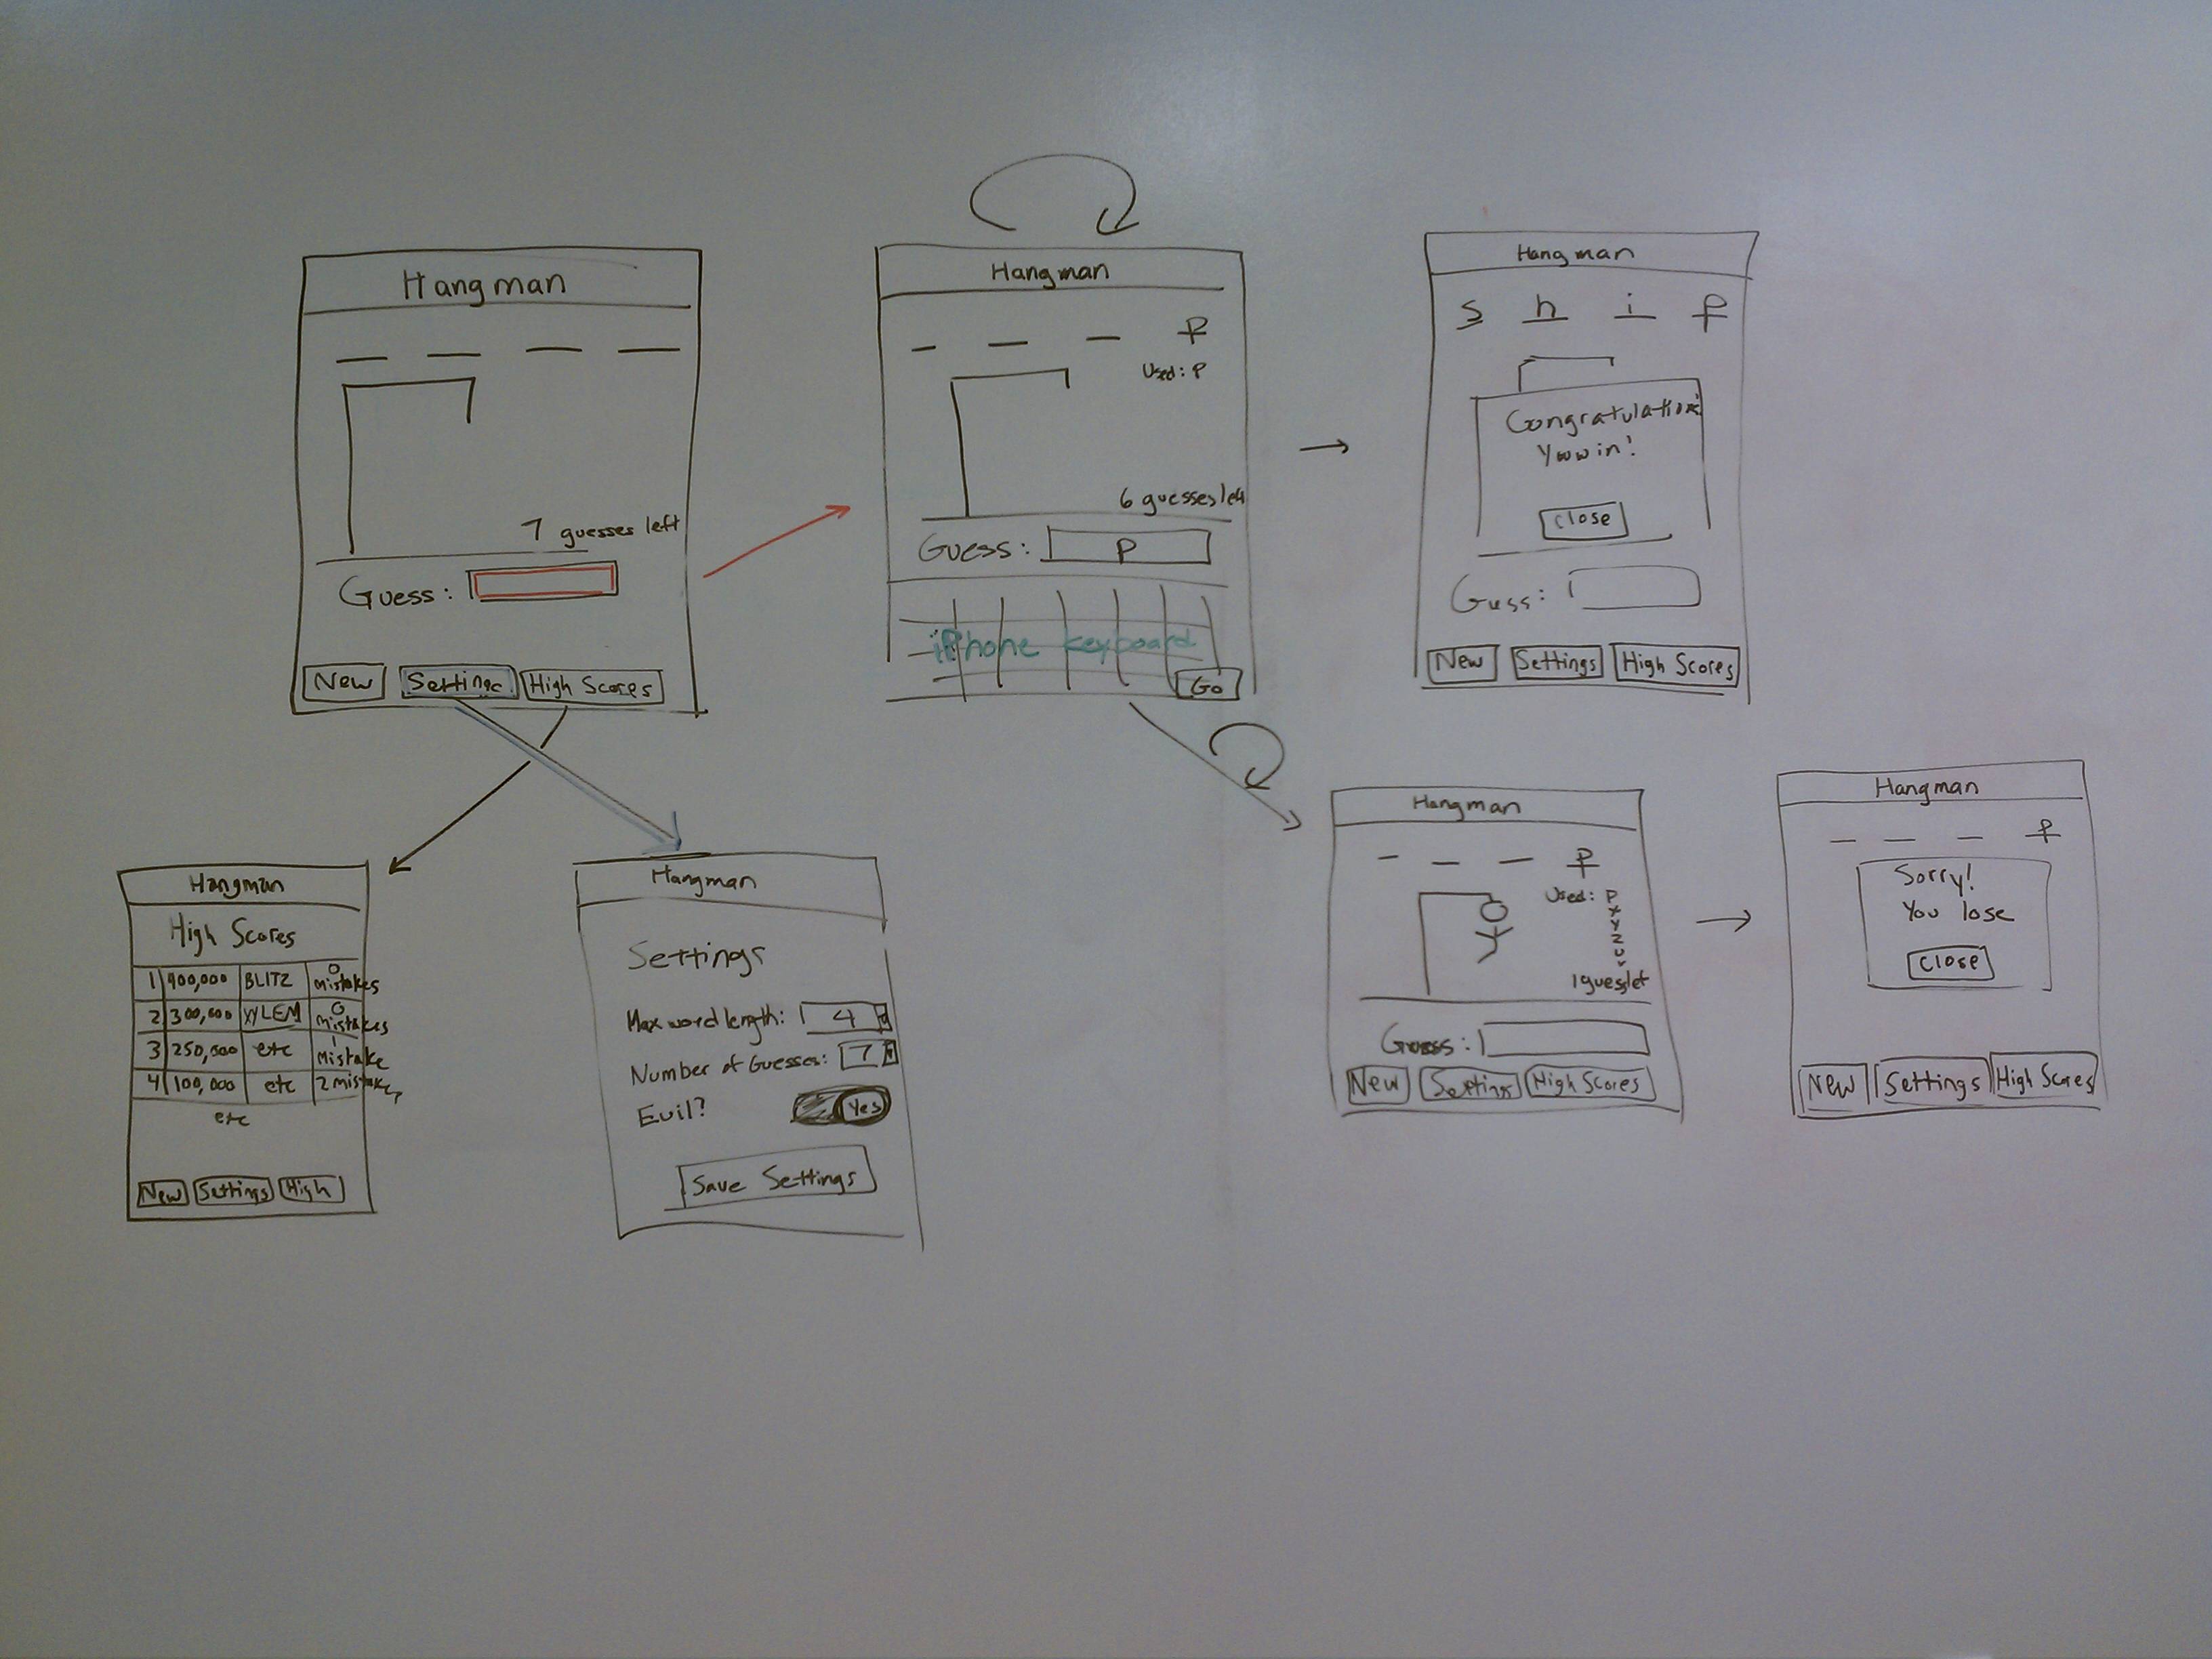 Hangman
7 guesses left
Guess:
New Settings High Scores
Hangman
P
Used: P
6 guesses left
Guess: P
iPhone keyboard
Go
Hangman
s h i p
Congratulations!
You win!
Close
Guess:
New Settings High Scores
Hangman
High Scores
1 900,000 BLITZ 0 mistakes
2 300,000 XYLEM 0 mistakes
3 250,000 etc 1 mistake
4 100,000 etc 2 mistakes
etc
New Settings High
Hangman
Settings
Max word length: 4
Number of Guesses: 7
Evil? Yes
Save Settings
Hangman
P
Used: P
X
Y
Z
U
V
1 guess left
Guess:
New Settings High Scores
Hangman
P
Sorry!
You lose
Close
New Settings High Scores